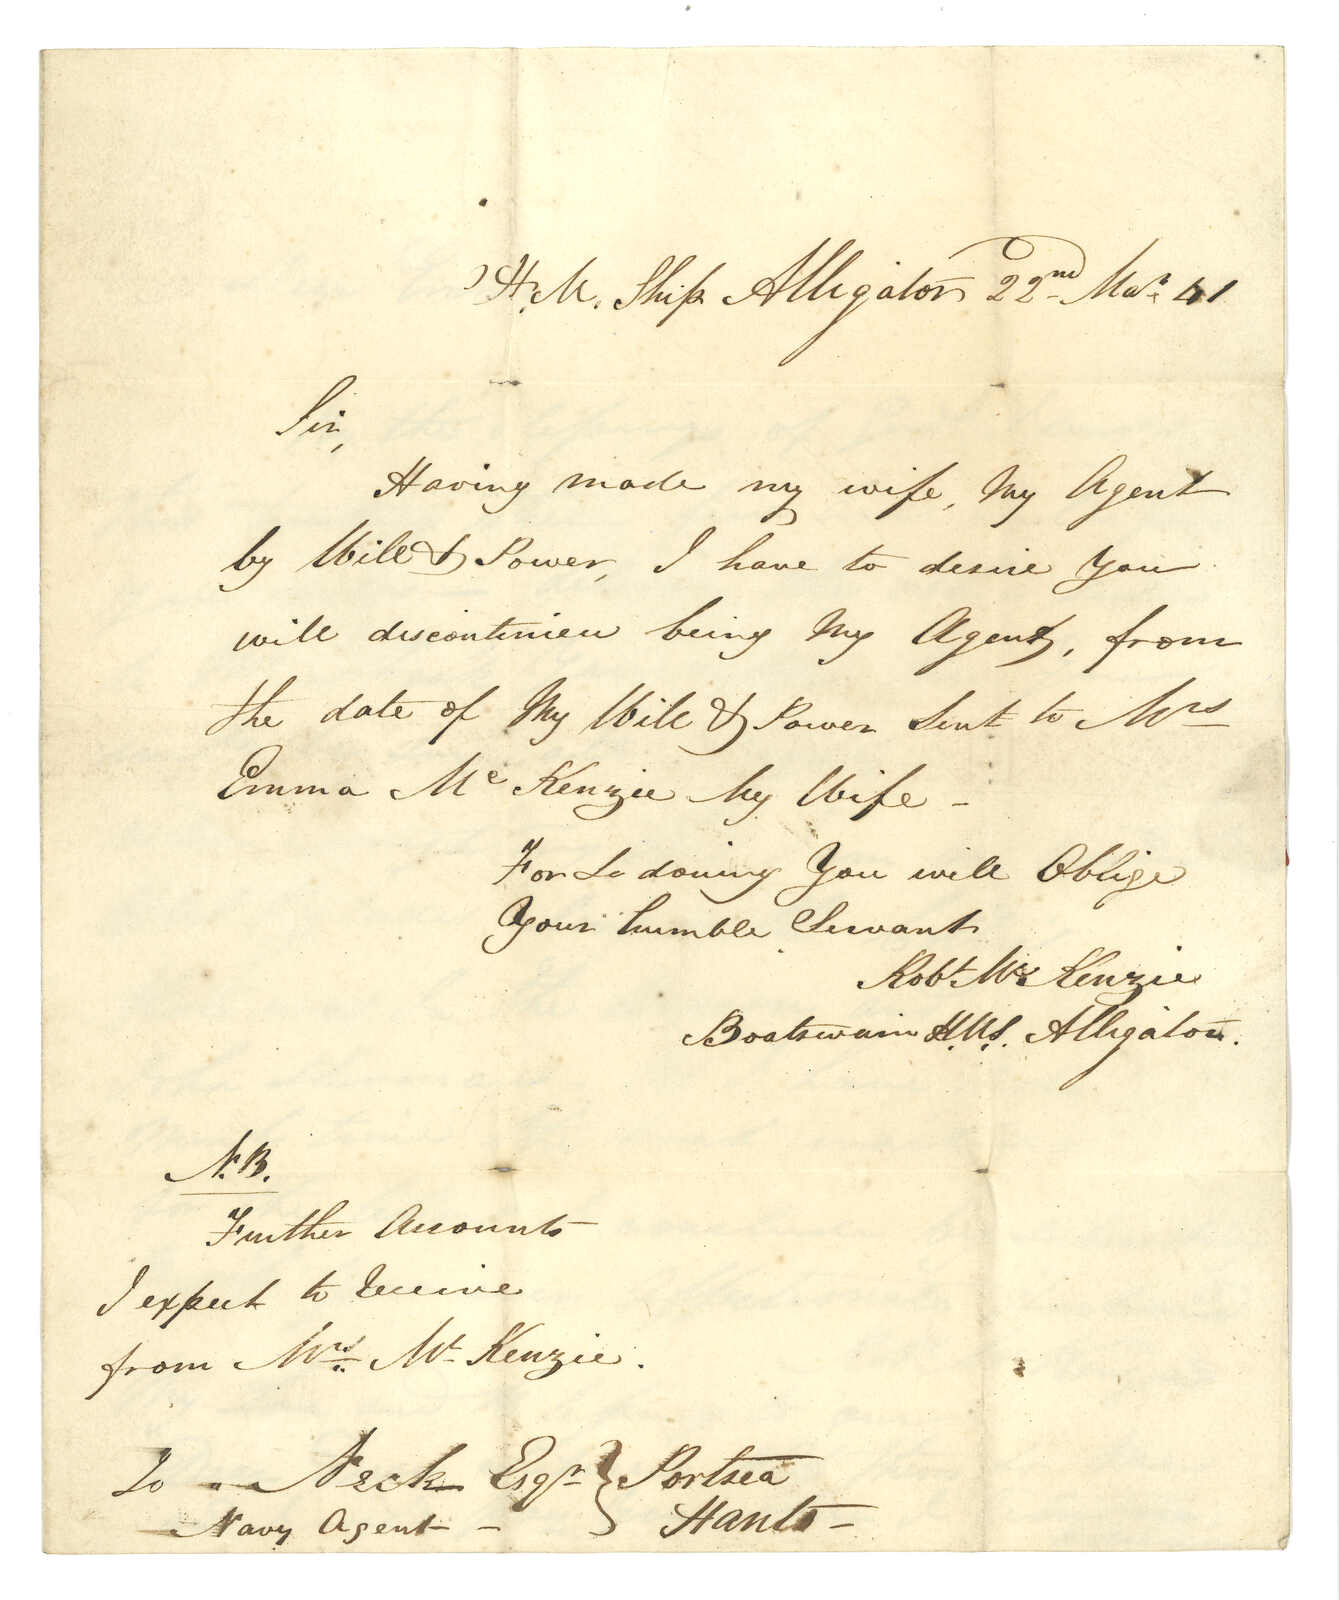 H.M. Ship Alligator 22nd Mar. 41
Sir,
Having made my wife, My Agent
by Will & Power, I have to desire You
will discontinieu being My Agent, from
the date of My Will & Power Sent to Mrs
Emma Mc Kenzie My Wife -
For So doing You will Oblige
Your humble Servant
Robt Mc Kenzie
Boatswain H.M.S. Alligator.
N.B.
Further Accounts
I expect to Receive
from Mrs. Mc Kenzie.
To -- Neck Esqr } Portsea
Navy Agent - } Hants -